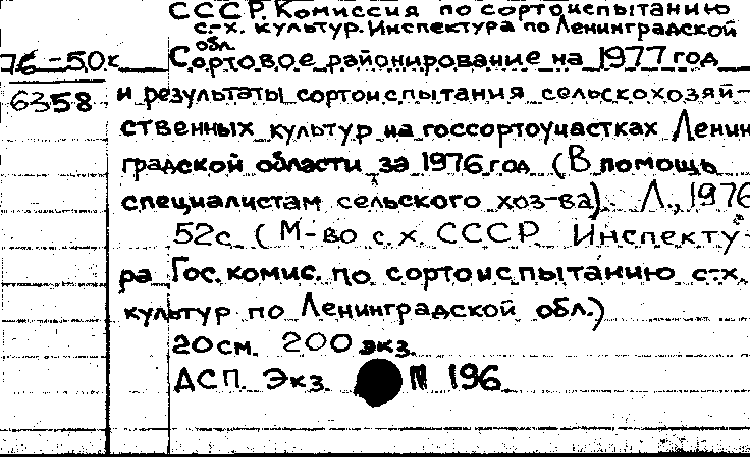 СССР. Комиссия по сортоиспытанию
с.-х. культур. Инспектура по Ленинградской
обл.
76-50к Сортовое районирование на 1977 год
6358 и результаты сортоиспытания сельскохозяй-
ственных культур на госсортоучастках Ленин
градской области за 1976 год (В помощь
специалистам сельского хоз-ва). Л., 1976
52с. (М-во с.х. СССР Инспекту-
ра Гос. комис. по сортоиспытанию с.-х.
культур по Ленинградской обл.)
20см. 200 экз.
ДСП. Экз. N 196